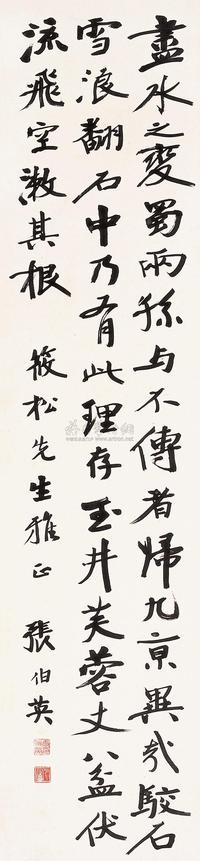 盡水之變蜀兩孫与不傳者歸九京異哉駮石
雪浪翻石中乃有此理存玉井芙蓉丈八盆伏
流飛空漱其根
筱松先生雅正 張伯英